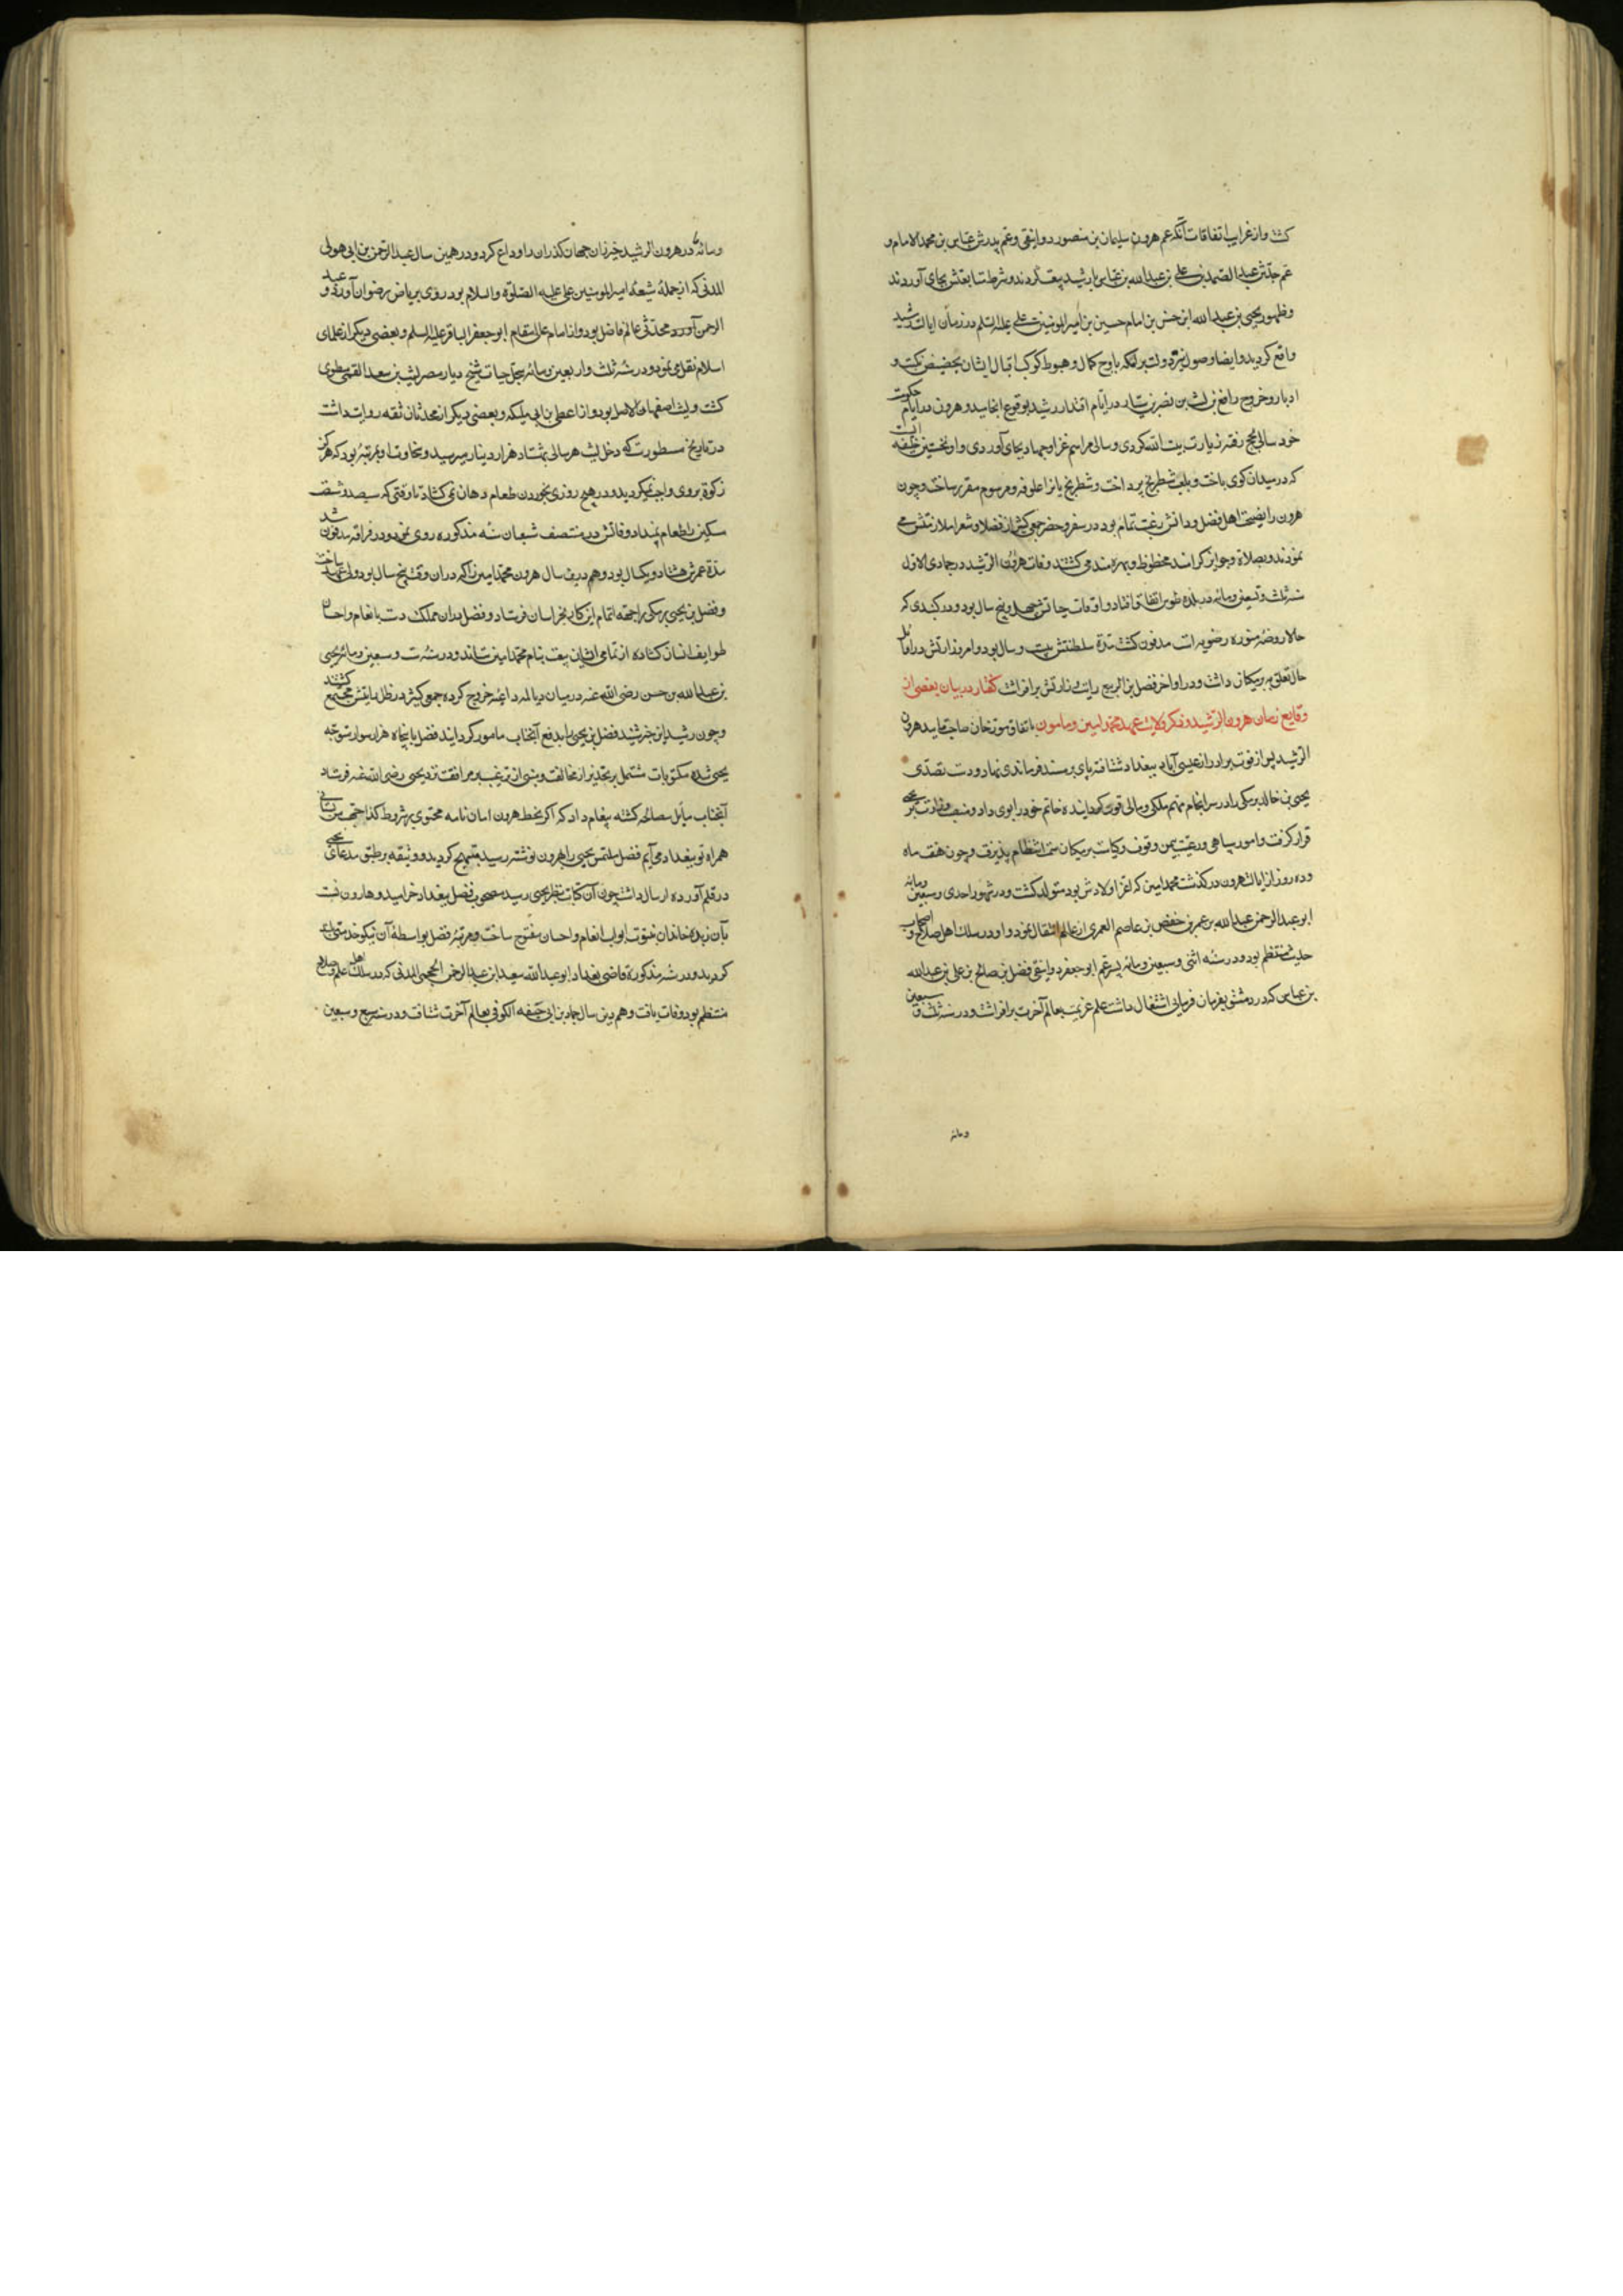 کشت و از غرایب اتفاقات آنکه عم هرون سلیمان بن منصور دوانقی و عم پدرش عباس بن محمد الامام و
عم جدش عبد الصمد بن علی بن عبدالله بن عباس با رشید بیعت کردند و شرط متابعتش بجای آوردند
و ظهور یحیی بن عبدالله ابن حسن بن امام حسین بن امیر المومنین علی علیه السلم در زمان ایالت رشید
واقع کردید و ایضا وصول نیر دولت برامکه باوج کمال و هبوط کوکب اقبال ایشان بحضیض نکبت و
ادبار و خروج رافع بن لیث بن نصر بن سیار در ایام اقتدار رشید بوقوع انجامید و هرون در ایام حکومت
خود سالی بحج رفته زیارت بیت الله کردی و سالی مراسم غزا و جهاد بجای آوردی و او نخستین خلیفه است
که در میدان کوی باخت و بلعب شطرنج پرداخت و شطرنج بازانرا علوفه و مرسوم مقرر ساخت و چون
هرون را بصحبت اهل فضل و دانش رغبت تمام بود در سفر و حضر جمعی کثیر از فضلا و شعرا ملازمتش می
نمودند و بصلات و جوایز کرانمند محظوظ و بهره مند می کشتند وفات هرون الرشید در جمادی الاول
سنه ثلث و تسعین و مائه در بلده طوس اتفاق افتاد و اوقات حیاتش چهل و پنج سال بود و در کنبدی که
حالا روضه منوره رضویه است مدفون کشت مدة سلطنتش بیست و سه سال بود و امر وزارتش در اوایل
حال تعلق به برمکیان داشت و در اواخر فضل بن الربیع رایت وزارتش برافراشت کفتار در بیان بعضی از
وقایع زمان هرون الرشید و ذکر ولایت عهد محمد امین و مامون باتفاق مورخان صاحب تایید هرون
الرشید پس از فوت برادر از عیسی آباد ببغداد شتافته پای بر مسند فرماندهی نهاد و دست تصدی
یحیی بن خالد برمکی را در سرانجام مهام ملکی و مالی قوی کردانیده خاتم خود را بوی داد و منصب وزارت بر یحیی
قرار کرفت و امور سپاهی و رعیت بیمن وقوف و کیاست برمکیان سمت انتظام پذیرفت و چون هفت ماه
و ده روز از ایالت هرون در کذشت محمد امین که اعز اولادش بود متولد کشت و در شهور احدی و سبعین و مائه
ابو عبد الرحمن عبدالله بن عمر بن حفص بن عاصم العمری از عالم انتقال نمود و او در سلک اهل صلاح و اصحاب
حدیث منتظم بود و در سنه اثنی و سبعین و مائه پسر عم ابو جعفر دوانقی فضل بن صالح بن علی بن عبدالله
بن عباس که در دمشق بفرمان فرمایی اشتغال داشت علم عزیمت بعالم آخرت برافراشت و در سنه ثلث و سبعین
و مائه
و مائه مادر هرون الرشید خیزران جهان کذران را وداع کرد و در همین سال عبد الرحمن بن ابی مولی
المدنی که از جمله شیعه امیر المومنین علی علیه الصلوة والسلام بود روی بریاض رضوان آورد و عبد
الرحمن آورد محدثی عالم فاضل بود و از امام عالی مقام ابو جعفر الباقر علیه السلم و بعضی دیکر از علمای
اسلام نقل می نمود و در سنه ثلث و اربعین و مائه سجل حیات شیخ دیار مصر لیث بن سعد الفهمی مطوی
کشت و لیث اصفهانی الاصل بود و از عطا بن ابی ملیکه و بعضی دیکر از محدثان ثقه روایت داشت
در تاریخ مسطور است که دخل لیث هر سالی بهشتاد هزار دینار میرسید و سخاوت او بمرتبه بود که هرکز
زکوة بر وی واجب نمی کردید و در هیچ روزی بخوردن طعام دهان نمی کشاد تا وقتی که سیصد و شصت
مسکین را طعام نمیداد وفاتش در منتصف شعبان سنه مذکوره روی نمود و در قرافه مدفون شد
مدة عمرش هشتاد و یکسال بود و هم درین سال هرون محمد امین را که دران وقت پنج سال بود ولی عهد ساخت
و فضل بن یحیی برمکی را جهة اتمام این کار بخراسان فرستاد و فضل بدان مملکت دست بانعام و احسان
طوایف انسان کشاده از تمامی ایشان بیعت بنام محمد امین ستاند و در سنه ست و سبعین و مائه یحیی
بن عبدالله بن حسن رضی الله عنه در میان دیالمه داعیه خروج کرده جمعی کثیر در ظل رایتش مجتمع کشتند
و چون رشید این خبر شنید فضل بن یحیی را بدفع آنجناب مامور کردانید فضل با پنجاه هزار سوار متوجه
یحیی شده مکتوبات مشتمل بر تحذیر از مخالفت و مبنی از ترغیب بر موافقت نزد یحیی رضی الله عنه فرستاد
آنجناب مایل مصالحه کشته پیغام داد که اکر بخط هرون امان نامه محتوی بر شروط کذا جهة من ستانی
همراه تو ببغداد می آیم فضل ملتمس یحیی را بهرون نوشته رسید مبتهج کردید و وثیقه بر طبق مدعای یحیی
در قلم آورده ارسال داشت چون آن کتابت بنظر یحیی رسید مصحوب فضل ببغداد خرامید و هارون نسبت
بآن زبده خاندان نبوت ابواب انعام و احسان مفتوح ساخت و مرتبه فضل بواسطه آن نیکو خدمتی بلند
کردید و در سنه مذکوره قاضی بغداد ابو عبدالله سعید ابن عبد الرحمن الجمحی المدنی که در سلک اهل علم و صلاح
منتظم بود وفات یافت و هم درین سال حماد بن ابی حنیفه الکوفی بعالم آخرت شتافت و در سنه سبع و سبعین